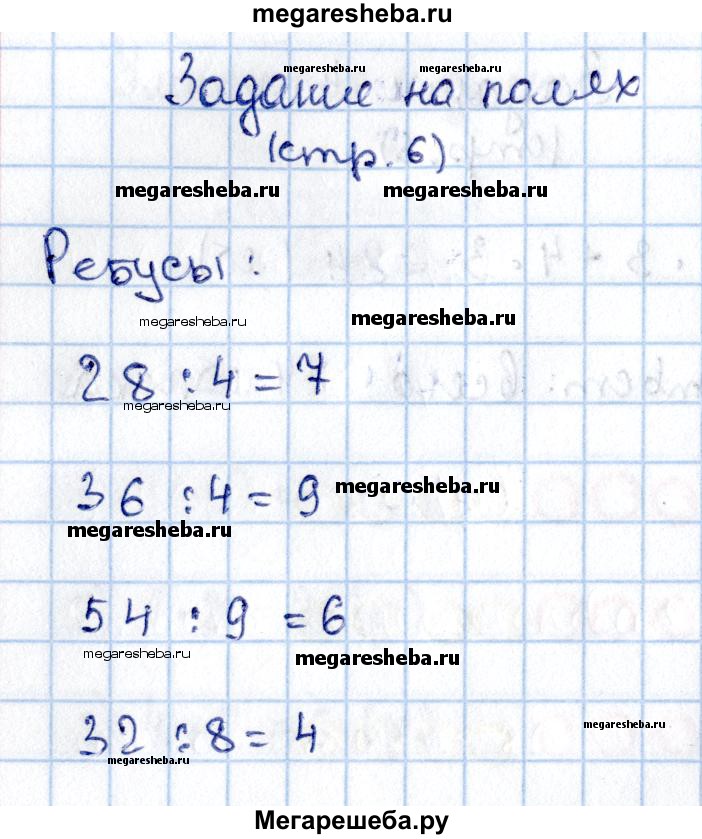 megaresheba.ru
megaresheba.ru megaresheba.ru
Задание на полях
(стр. 6)
megaresheba.ru megaresheba.ru
Ребусы:
megaresheba.ru megaresheba.ru
28 : 4 = 7
megaresheba.ru
36 : 4 = 9 megaresheba.ru
megaresheba.ru
54 : 9 = 6
megaresheba.ru megaresheba.ru
32 : 8 = 4 megaresheba.ru
megaresheba.ru
Мегарешеба.ру